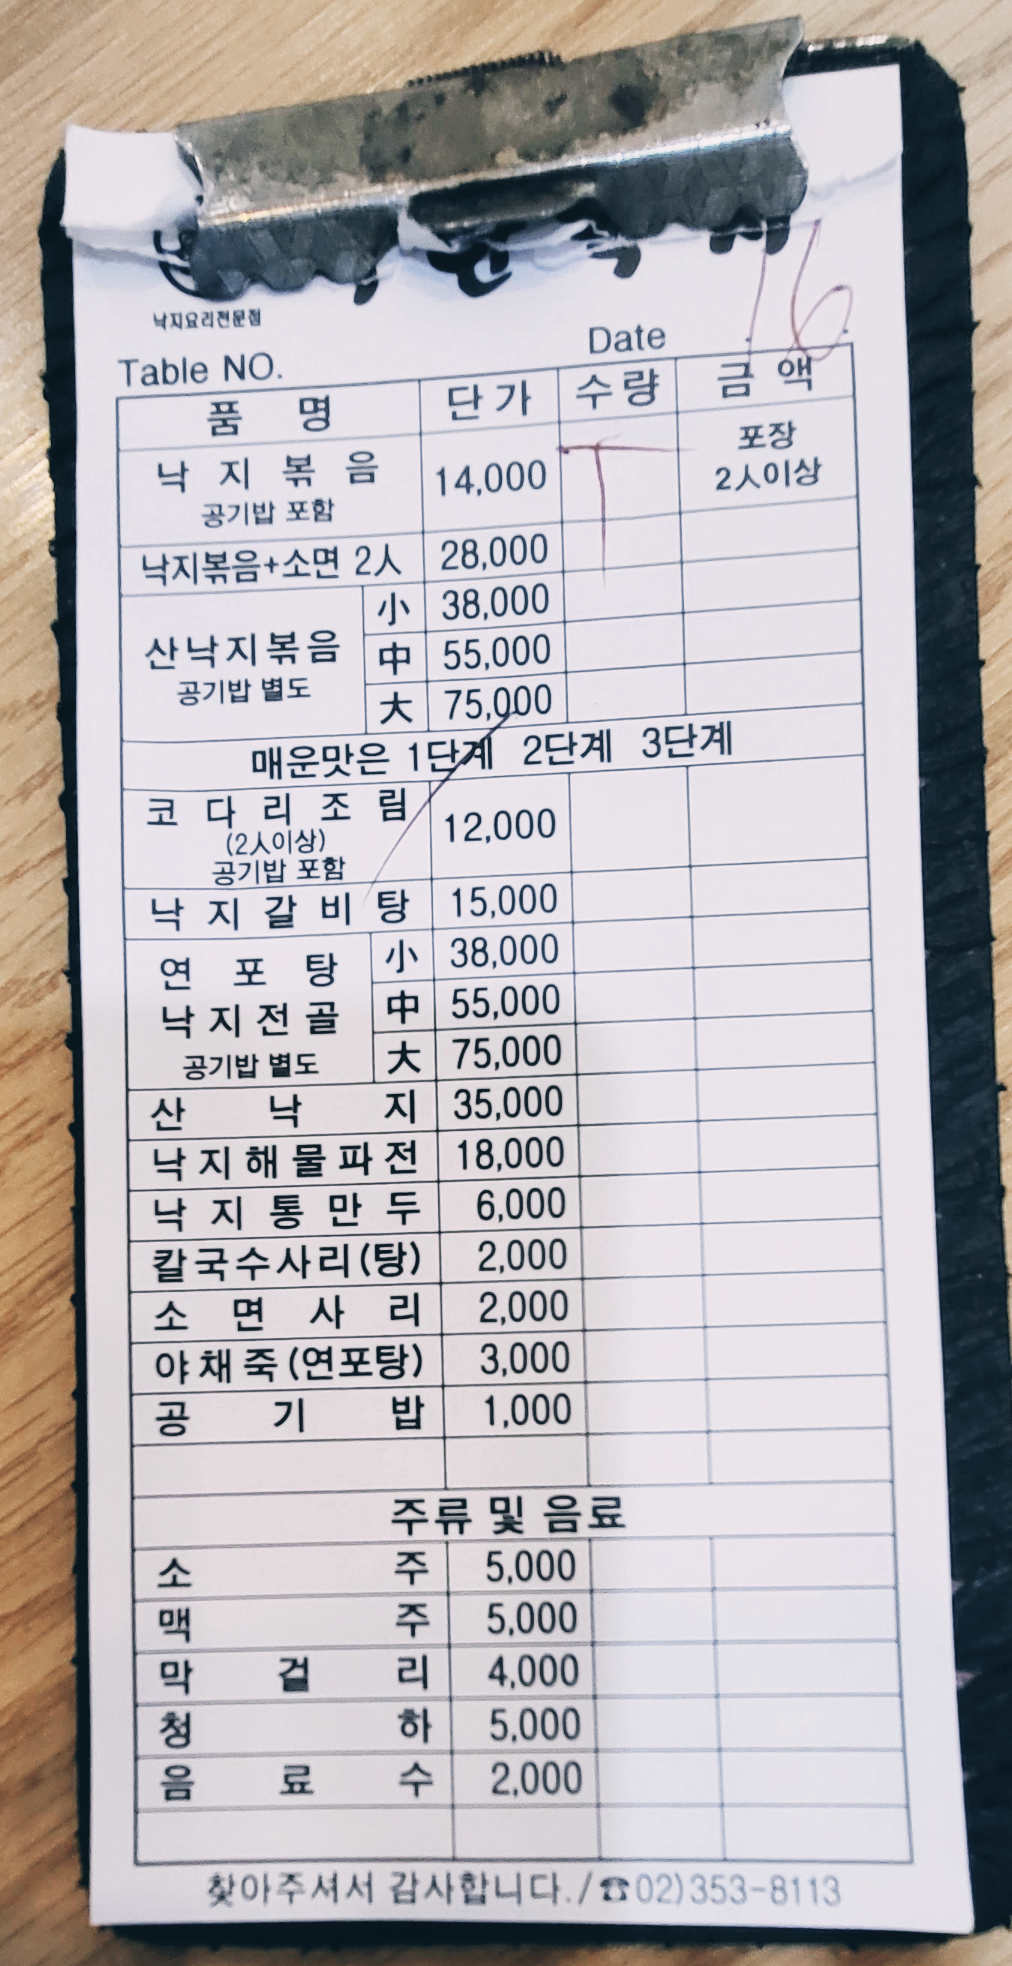 낙지요리전문점
16
Table NO. Date
품 명 단가 수량 금액
낙지볶음 14,000 T 포장
공기밥 포함 2人이상
낙지볶음+소면 2人 28,000
小 38,000
산낙지볶음 中 55,000
공기밥 별도
大 75,000
매운맛은 1단계 2단계 3단계
코다리조림 12,000
(2人이상)
공기밥 포함
낙지갈비탕 15,000
연포탕 小 38,000
낙지전골 中 55,000
공기밥 별도 大 75,000
산낙지 35,000
낙지해물파전 18,000
낙지통만두 6,000
칼국수사리(탕) 2,000
소면사리 2,000
야채죽(연포탕) 3,000
공기밥 1,000
주류 및 음료
소주 5,000
맥주 5,000
막걸리 4,000
청하 5,000
음료수 2,000
찾아주셔서 감사합니다./☎02)353-8113